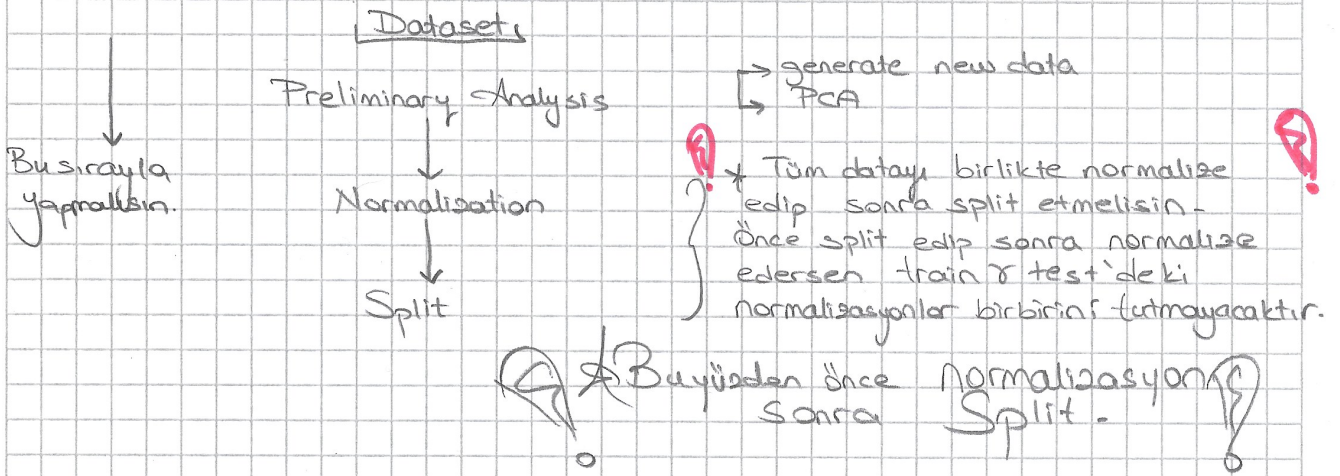 Dataset
Preliminary Analysis
→ generate new data
→ PCA
Bu sırayla
yapmalısın.
Normalization
Split
* Tüm datayı birlikte normalize
edip sonra split etmelisin-
Önce split edip sonra normalize
edersen train & test'deki
normalizasyonlar birbirini tutmayacaktır.
* Bu yüzden önce normalizasyon
sonra Split.